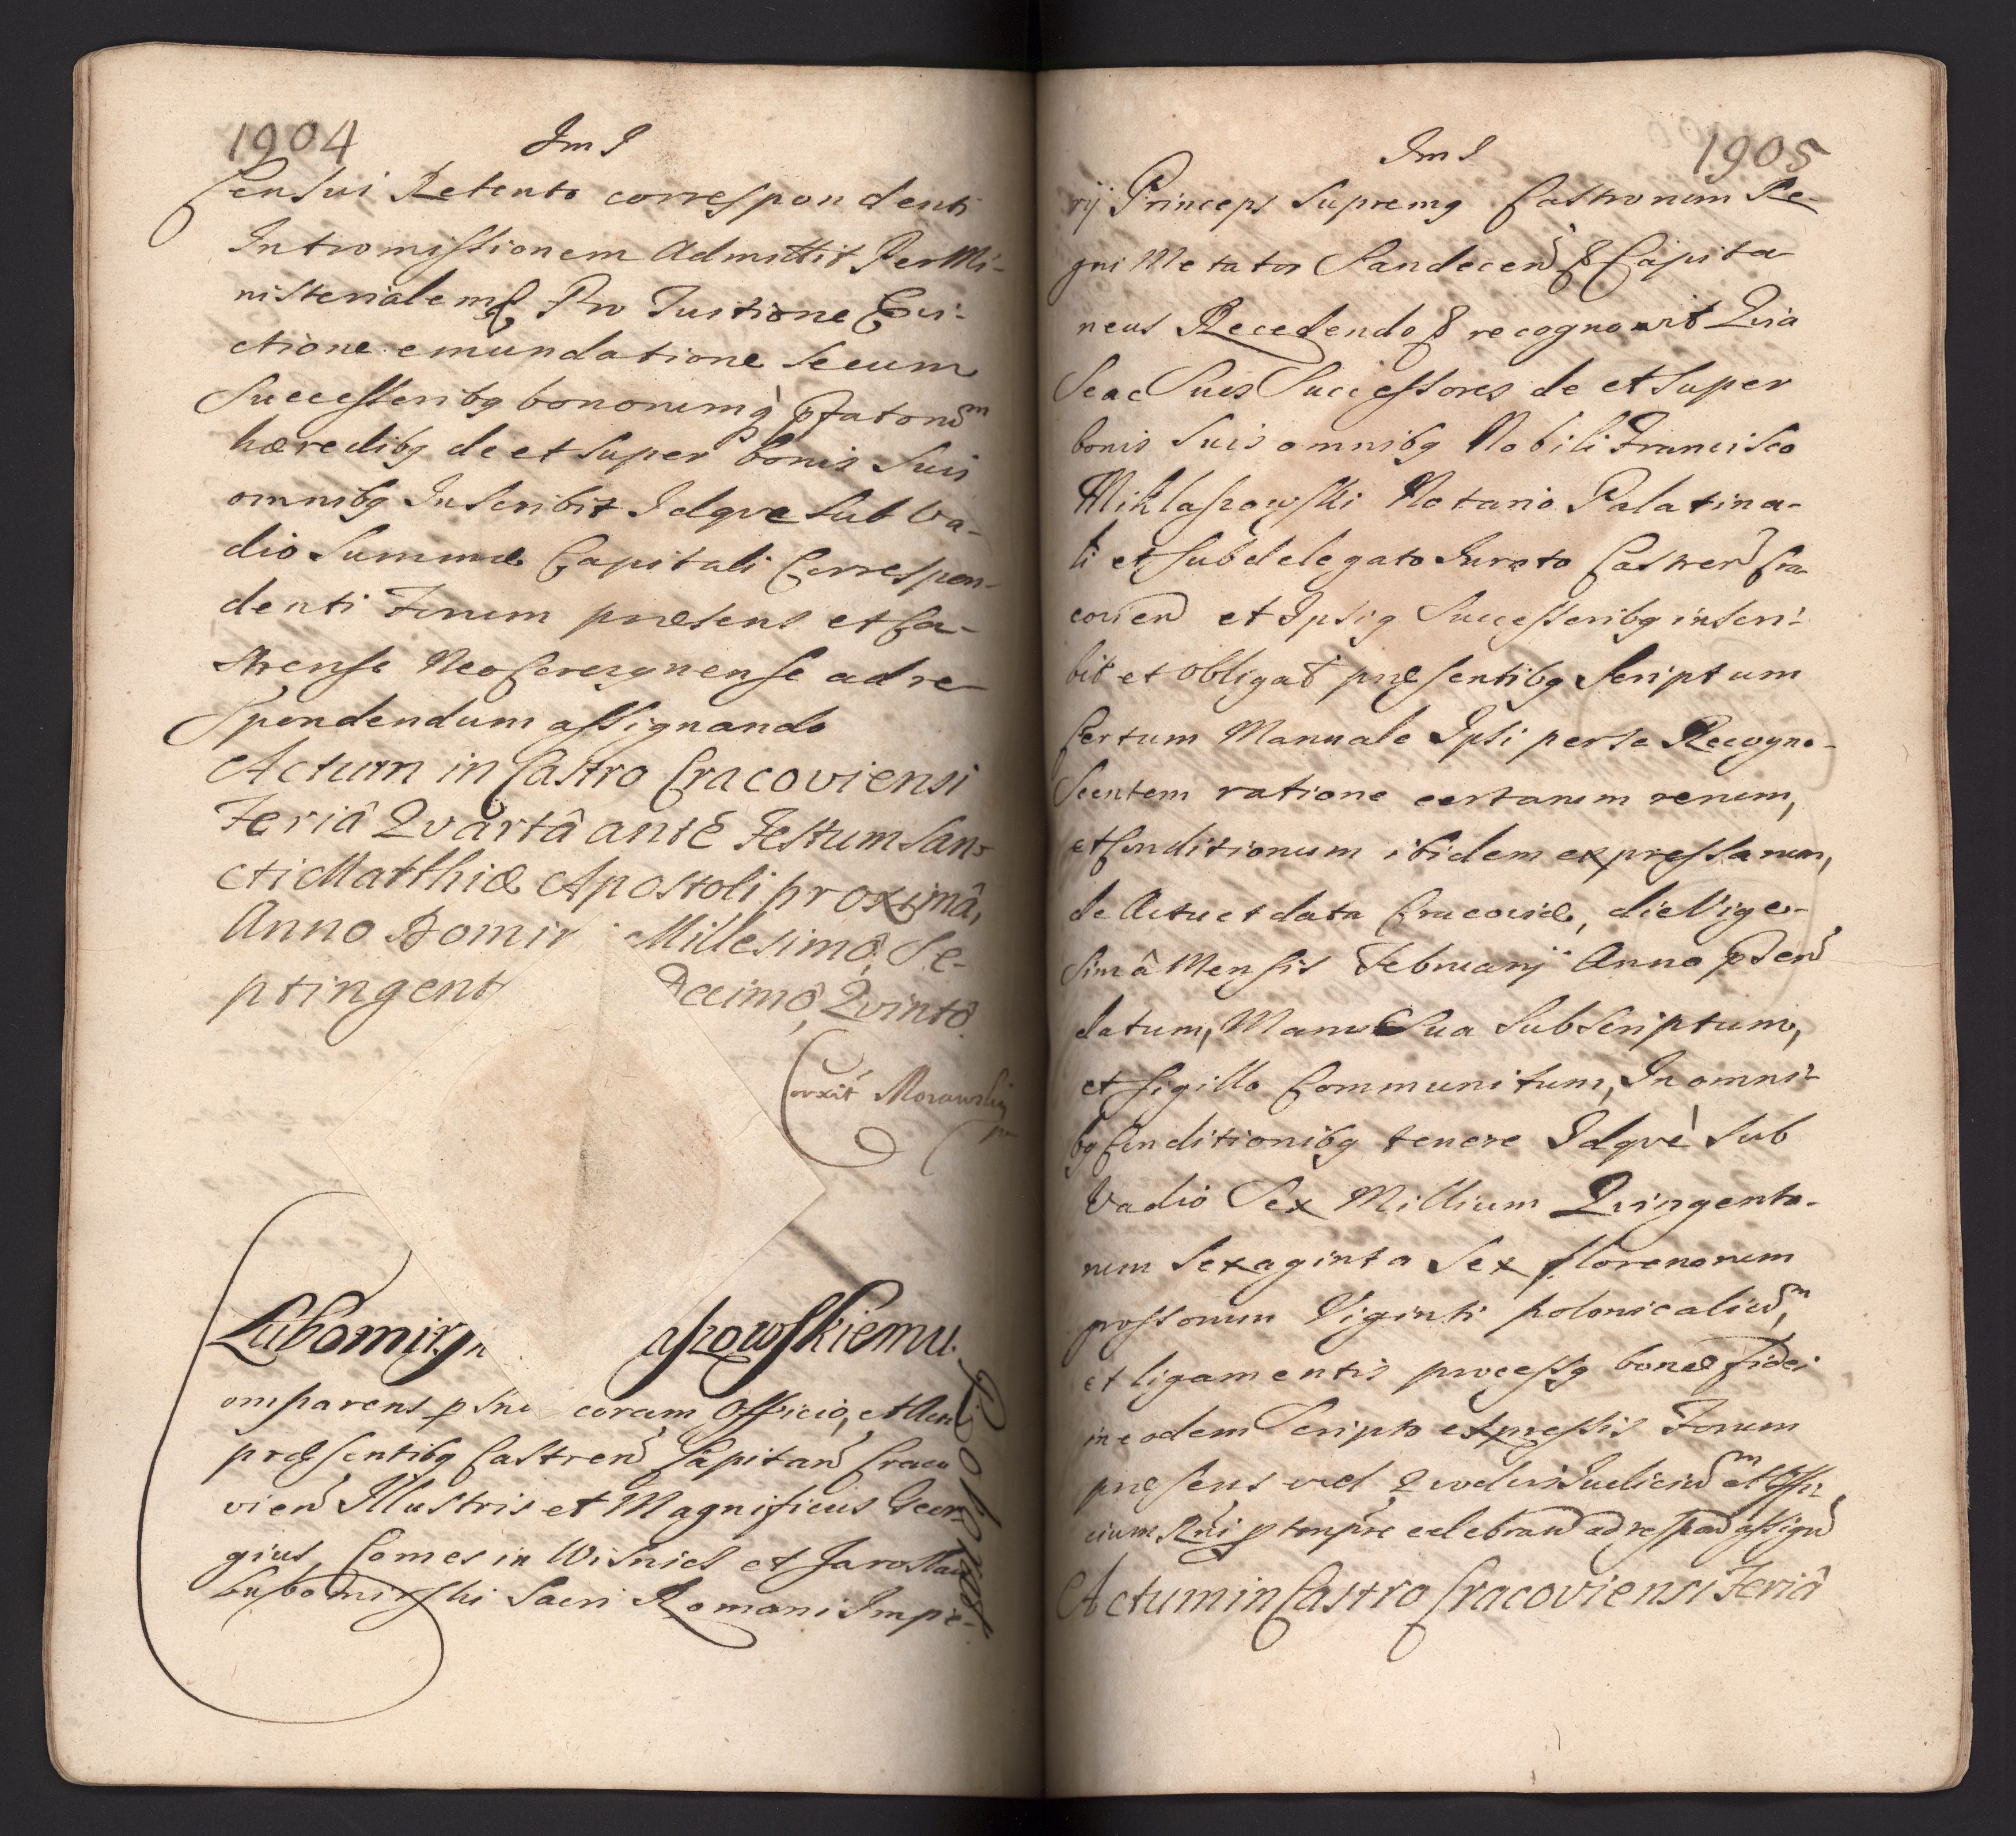 1904
Jm J
Censui Retento correspondenti
Intromissionem Admittit Per Mi-
nisterialemq Pro Tuitione Evi-
ctione emundatione secum
Successoribq bonorumq̀ pfatorūm
hæredibq de et super bonis suis
omnibq Inscribit Idqve sub Va-
dio summæ Capitali Correspon-
denti Forum præsens et Ca-
strense NeoCorczynense ad re
spondendum assignando
Actum in Castro Cracoviensi
Feriâ Qvartâ ante Festum San-
cti Matthiæ Apostoli proximâ,
Anno Domi Millesimô, Se-
ptingent Decimô, Qvintô
Corxit Morawski
Lubomirs aszowskiemu
omparens psn coram Officio, et Act
præsentibq Castren Capitan Craco
vien Illustris et Magnificus Geor
gius, Comes in Wisnicz et Jaroslau
Lubomirski Sacri Romani Impe-
Roborat
Jm J
1905
rij Princeps Supremq Castrorum Re-
gni Metator Sandecen & Capita
neus Recedendo & recognovit Qvia
Se ac Suos Successores de et super
bonis suis omnibq Nobili Francisco
Miklaszowski Notario Palatina-
li et Subdelegato Jurato Castren Cra
covien et Ipsiq Successoribq inscri-
bit et obligat præsentibq Scriptum
Certum Manuale Ipsi per se Recogno-
scentem ratione certarum rerum,
et Conditionum ibidem expressarum,
de Actu et data Cracoviæ, die Vige-
simâ Mensis Februarij Anno psen
datum, Manu Sua Subscriptum,
et sigillo Communitum, In omni-
bq Conditionibq tenere Idqvè sub
Vadio Sex Millium Qvingento-
rum Sexaginta Sex florenorum
grossorum Viginti polonicaliūm,
et ligamentis processq bonæ fidei
in eodem Scripto expressis Forum
præsens vel qvodvis Judiciūm et Offi-
cium Rni p tempore celebran ad respon assign
Actum in Castro Cracoviensi Feriâ